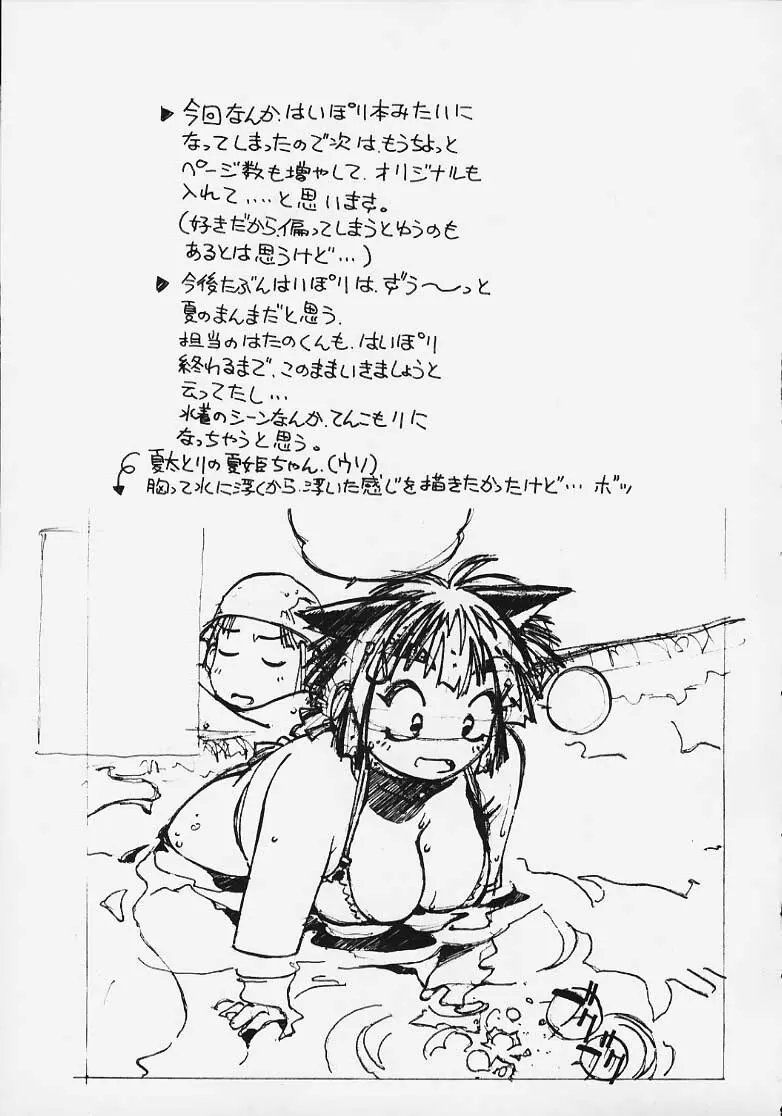 ▶ 今回なんか、はいぱり本みたいに
なってしまったので次は、もうちょっと
ページ数も増やして、オリジナルも
入れて‥‥と思います。
(好きだから、偏ってしまうとゆうのも
あるとは思うけど…)
▶ 今後たぶんはいぱりは、ずぅ〜〜っと
夏のまんまだと思う、
担当のはたのくんも、はいぱり
終わるまで、このままいきましょうと
云ってたし…
水着のシーンなんか、てんこもりに
なっちゃうと思う。
夏太とりの夏姫ちゃん、(ウソ)
胸って水に浮くから、浮いた感じを描きたかったけど… ボッ
ザザ
ザザ